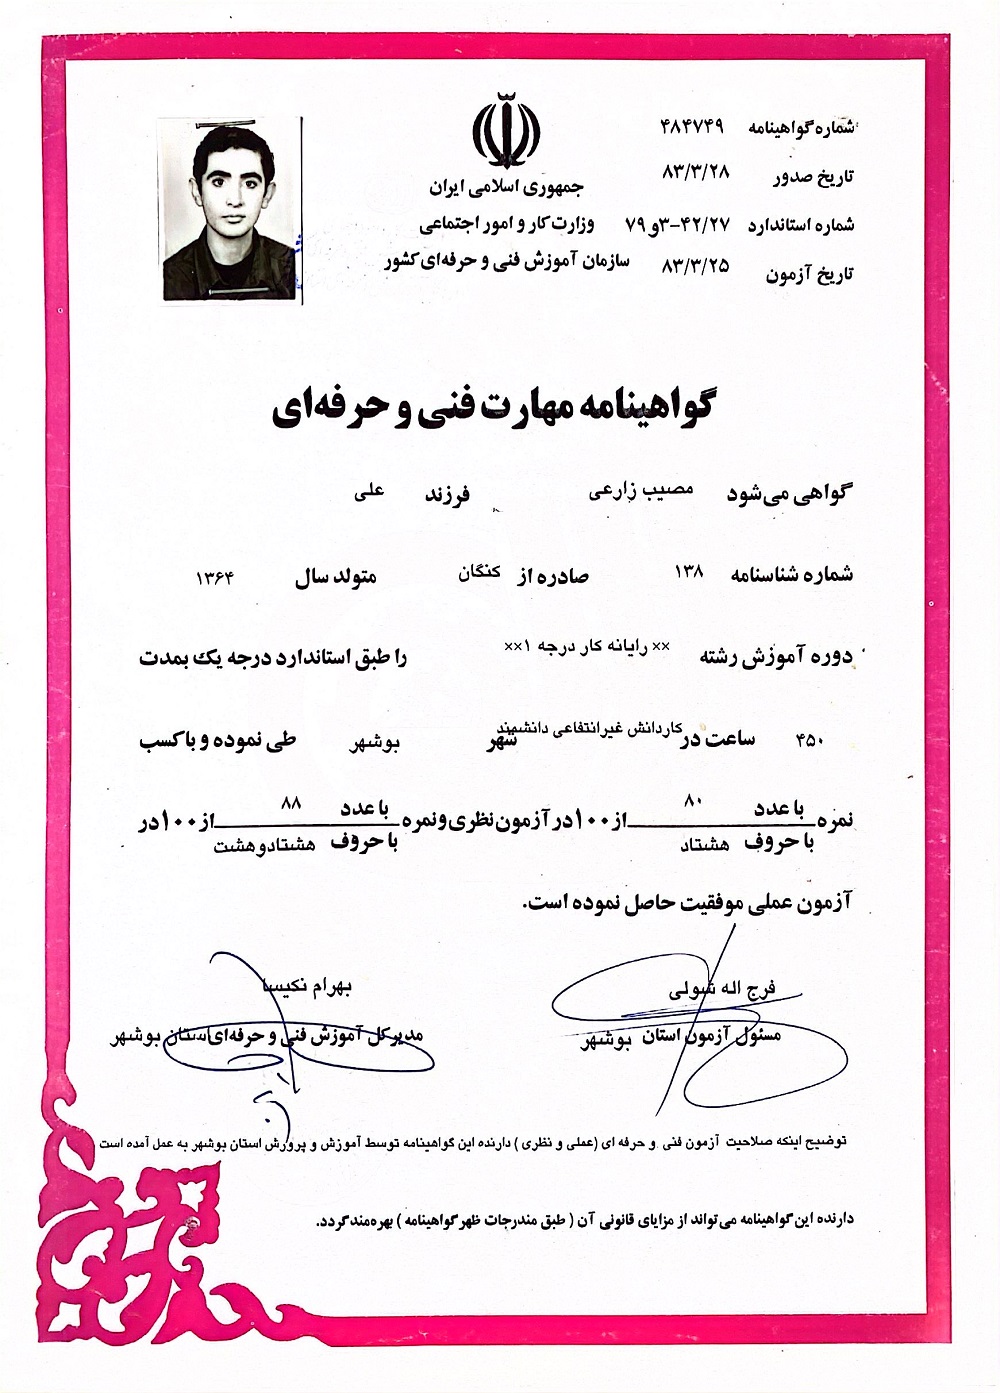 شماره گواهینامه ۴۸۴۷۴۹
تاریخ صدور ۸۳/۳/۲۸
جمهوری اسلامی ایران
شماره استاندارد ۳-۴۲/۲۷و ۷۹
وزارت کار و امور اجتماعی
تاریخ آزمون ۸۳/۳/۲۵
سازمان آموزش فنی و حرفه‌ای کشور
گواهینامه مهارت فنی و حرفه‌ای
گواهی می‌شود مصیب زارعی فرزند علی
شماره شناسنامه ۱۳۸ صادره از کنگان متولد سال ۱۳۶۴
دوره آموزش رشته ×× رایانه کار درجه ۱×× را طبق استاندارد درجه یک بمدت
۴۵۰ ساعت در کاردانش غیرانتفاعی دانشمند شهر بوشهر طی نموده و با کسب
نمره با عدد ۸۰ از ۱۰۰ در آزمون نظری و نمره با عدد ۸۸ از ۱۰۰ در
با حروف هشتاد با حروف هشتادوهشت
آزمون عملی موفقیت حاصل نموده است.
فرج اله شولی بهرام نکیسا
مسئول آزمون استان بوشهر مدیر کل آموزش فنی و حرفه‌ای استان بوشهر
توضیح اینکه صلاحیت آزمون فنی و حرفه ای (عملی و نظری ) دارنده این گواهینامه توسط آموزش و پرورش استان بوشهر به عمل آمده است
دارنده این گواهینامه می‌تواند از مزایای قانونی آن ( طبق مندرجات ظهر گواهینامه ) بهره‌مند گردد.